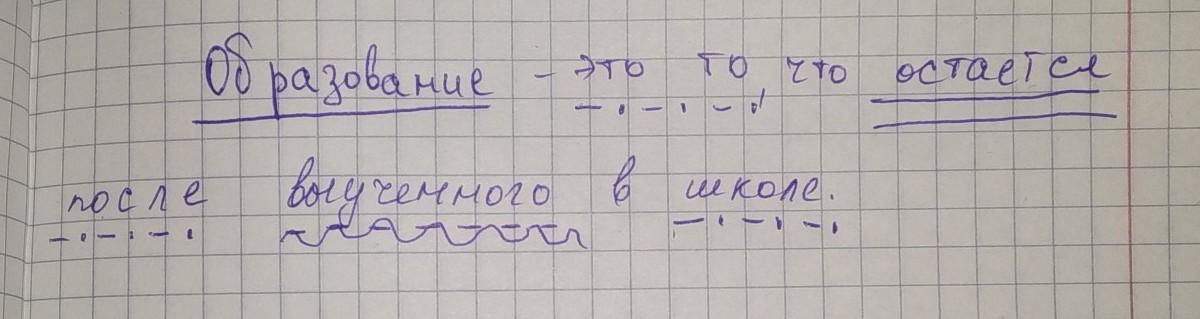 Образование - это то, что остается
после выученного в школе.